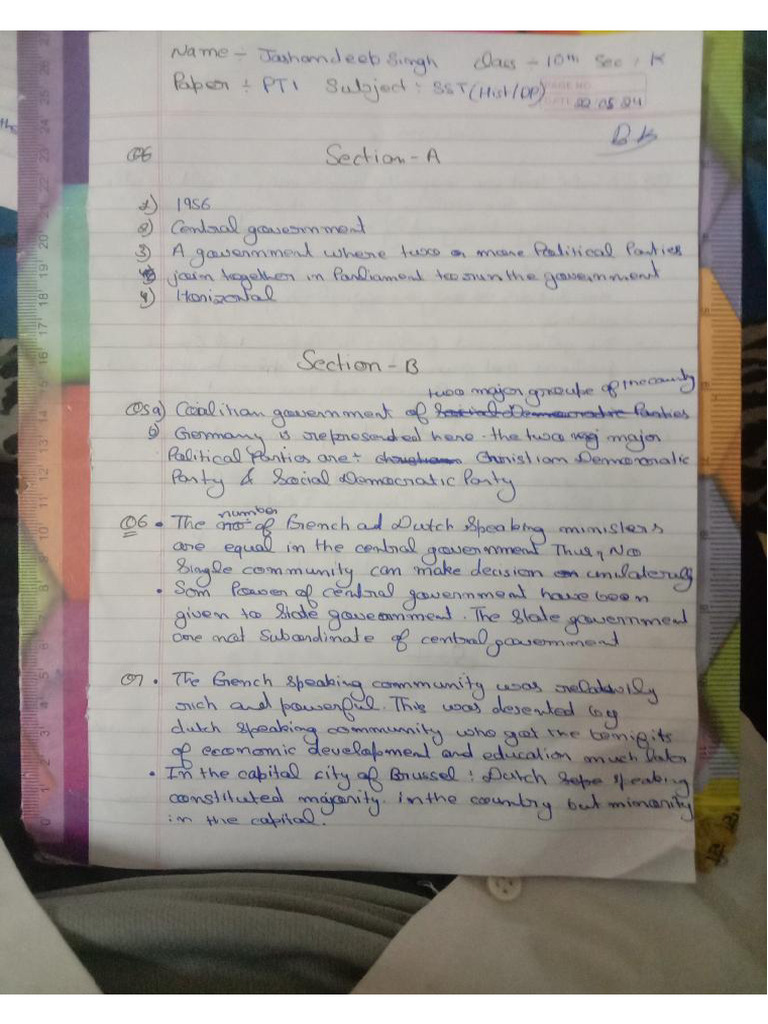 Name :- Jashandeep Singh Class - 10th Sec : K
Paper : PT1 Subject : SST (Hist/DP) PAGE NO.
DATE 22 05 24
Section - A
1) 1956
2) Central government
3) A government where two or more Political Parties
join together in Parliament to run the government
4) Horizontal
Section - B
two major groups of the county
Q5 a) Coalihan government of Social Democratic Parties
b) Germany is represended here. the two major
Political Parties are : Christian Demoncratic
Party & Social Democratic Party
number
Q6 • The no. of french ad Dutch speaking ministers
are equal in the central government Thus, No
Single community can make decision on unilaterlly
• Som Power of central government have been
given to State government. The State government
are not Subordinate of central government
Q7 • The french speaking community was relatively
rich and powerful. This was desented by
dutch speaking community who got the benifits
of economic development and education much later
• In the capital city of Brussel : Dutch speaking
constituted majority. in the country but minority
in the capital.